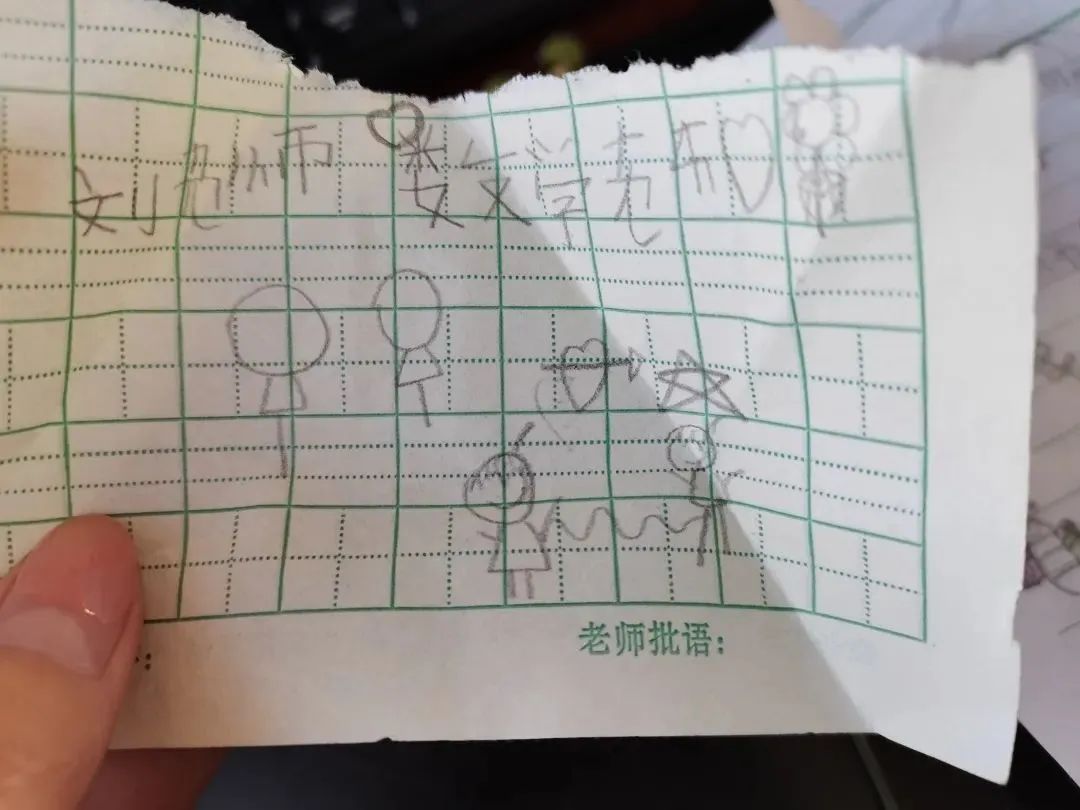 刘老师 数学老师
老师批语：